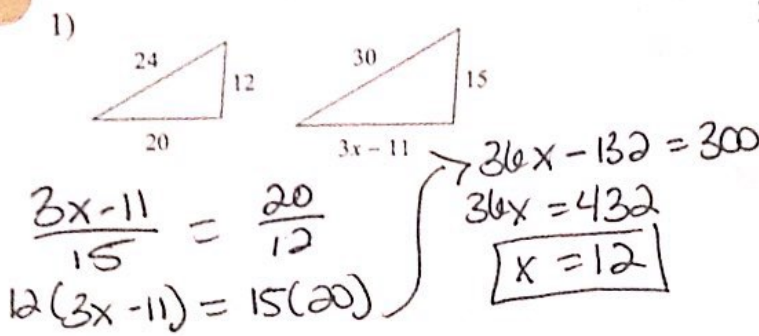 1)
24
12
20
30
15
3x – 11
3x-11 / 15 = 20 / 12
12(3x-11) = 15(20)
36x - 132 = 300
36x = 432
x = 12